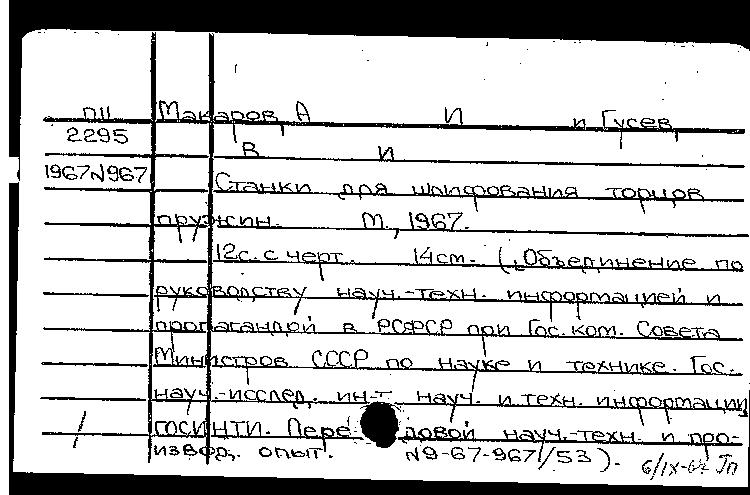 ПII Макаров, А И и Гусев,
2295 В И
1967№967 Станки для шлифования торцов
пружин. М., 1967.
12с. с черт. 14см. (Объединение по
руководству науч.-техн. информацией и
пропагандой в РСФСР при Гос. ком. Совета
Министров СССР по науке и технике. Гос.
науч.-исслед. ин-т науч. и техн. информации
ГОСИНТИ. Передовой науч.-техн. и про-
изввод. опыт. №9-67-967/53).